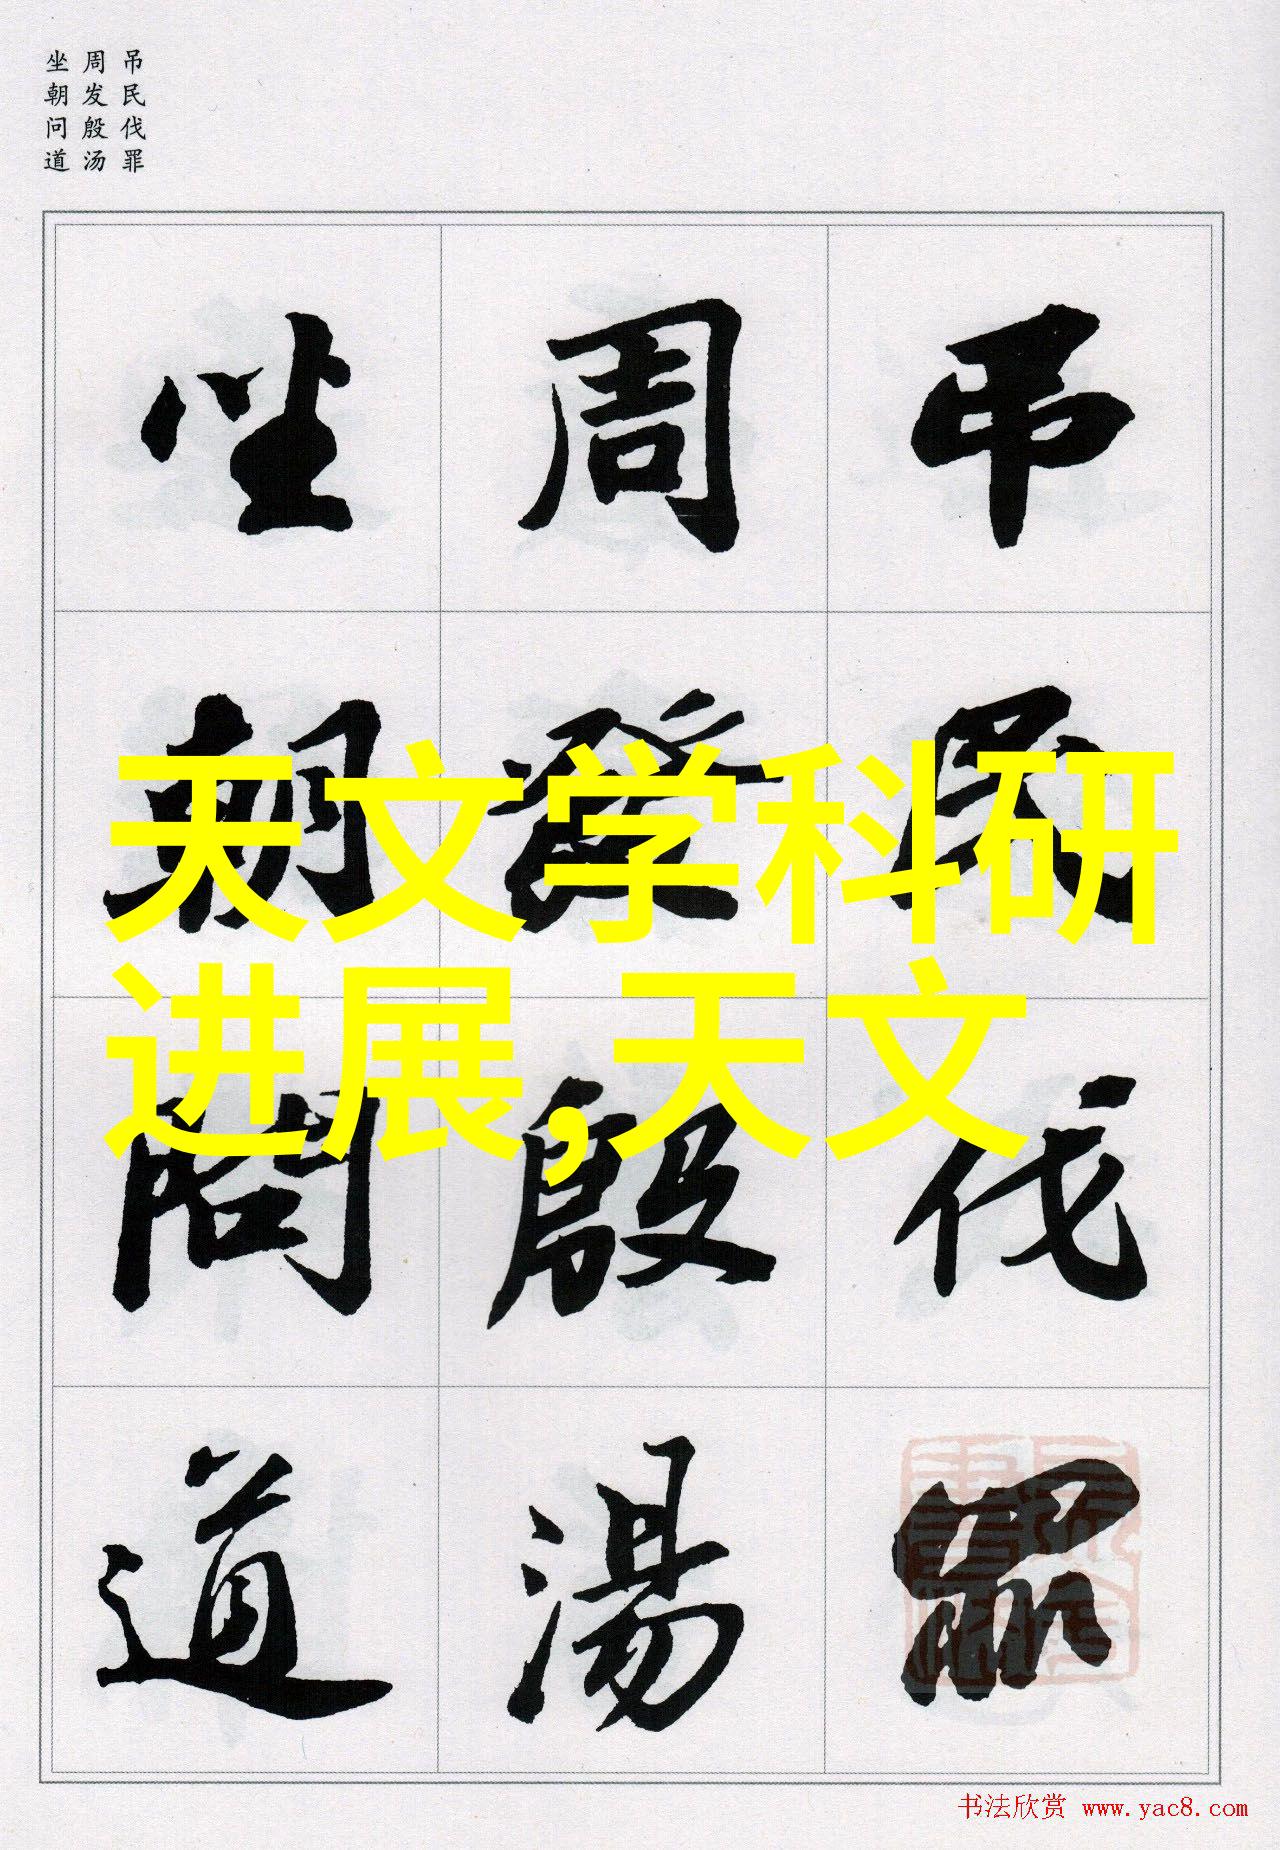 吊民伐罪
周发殷汤
坐朝问道
吊民伐罪
周發殷湯
坐朝問道
天文学科研
进展,天文
书法欣赏 www.yac8.com